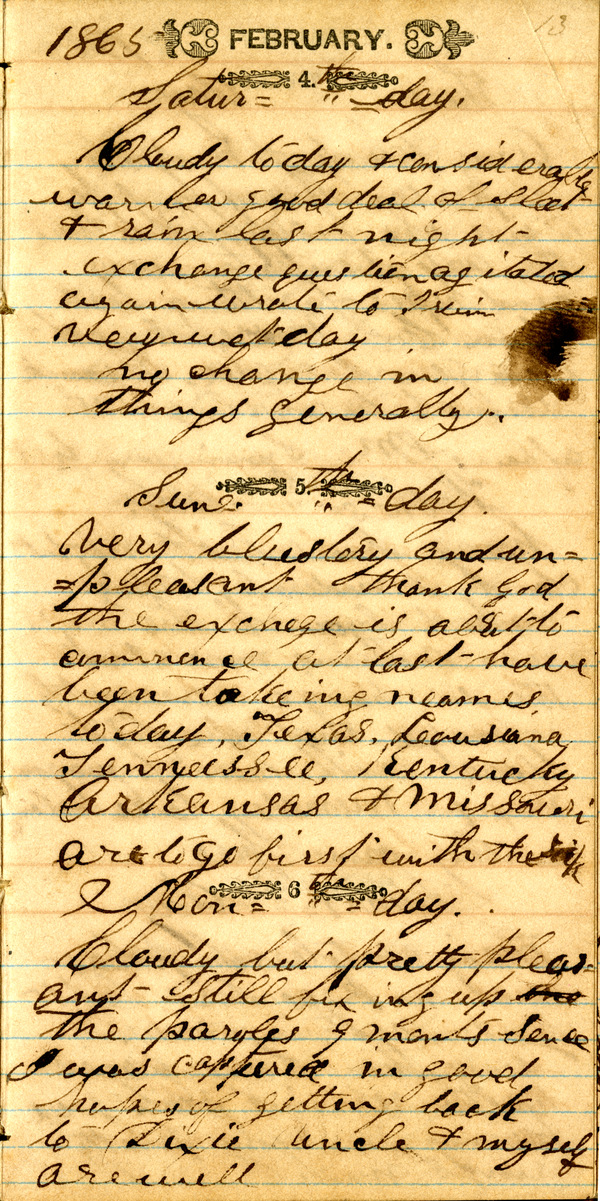 1865 FEBRUARY. 13
4. th
Satur= " =day.
Cloudy to day & considerable
warmer good deal of sleet
& rain last night
exchange question agitated
again wrote to
very wet day
no change in
things generally.
5 th
Sun= " = day.
Very blustery and un=
=pleasant thank God
the exchege is about to
commence at last have
been takeing neames
to day, Texas, Louisiana,
Tennessee, Kentucky
Arkansas & Missouri
are to go first with the sick
6 th
Mon= " = day.
Cloudy but pretty pleas=
ant still fix ing up the
the paroles 9 months sence
I was captured in good
hopes of getting back
to Dixie Uncle & myself
are well